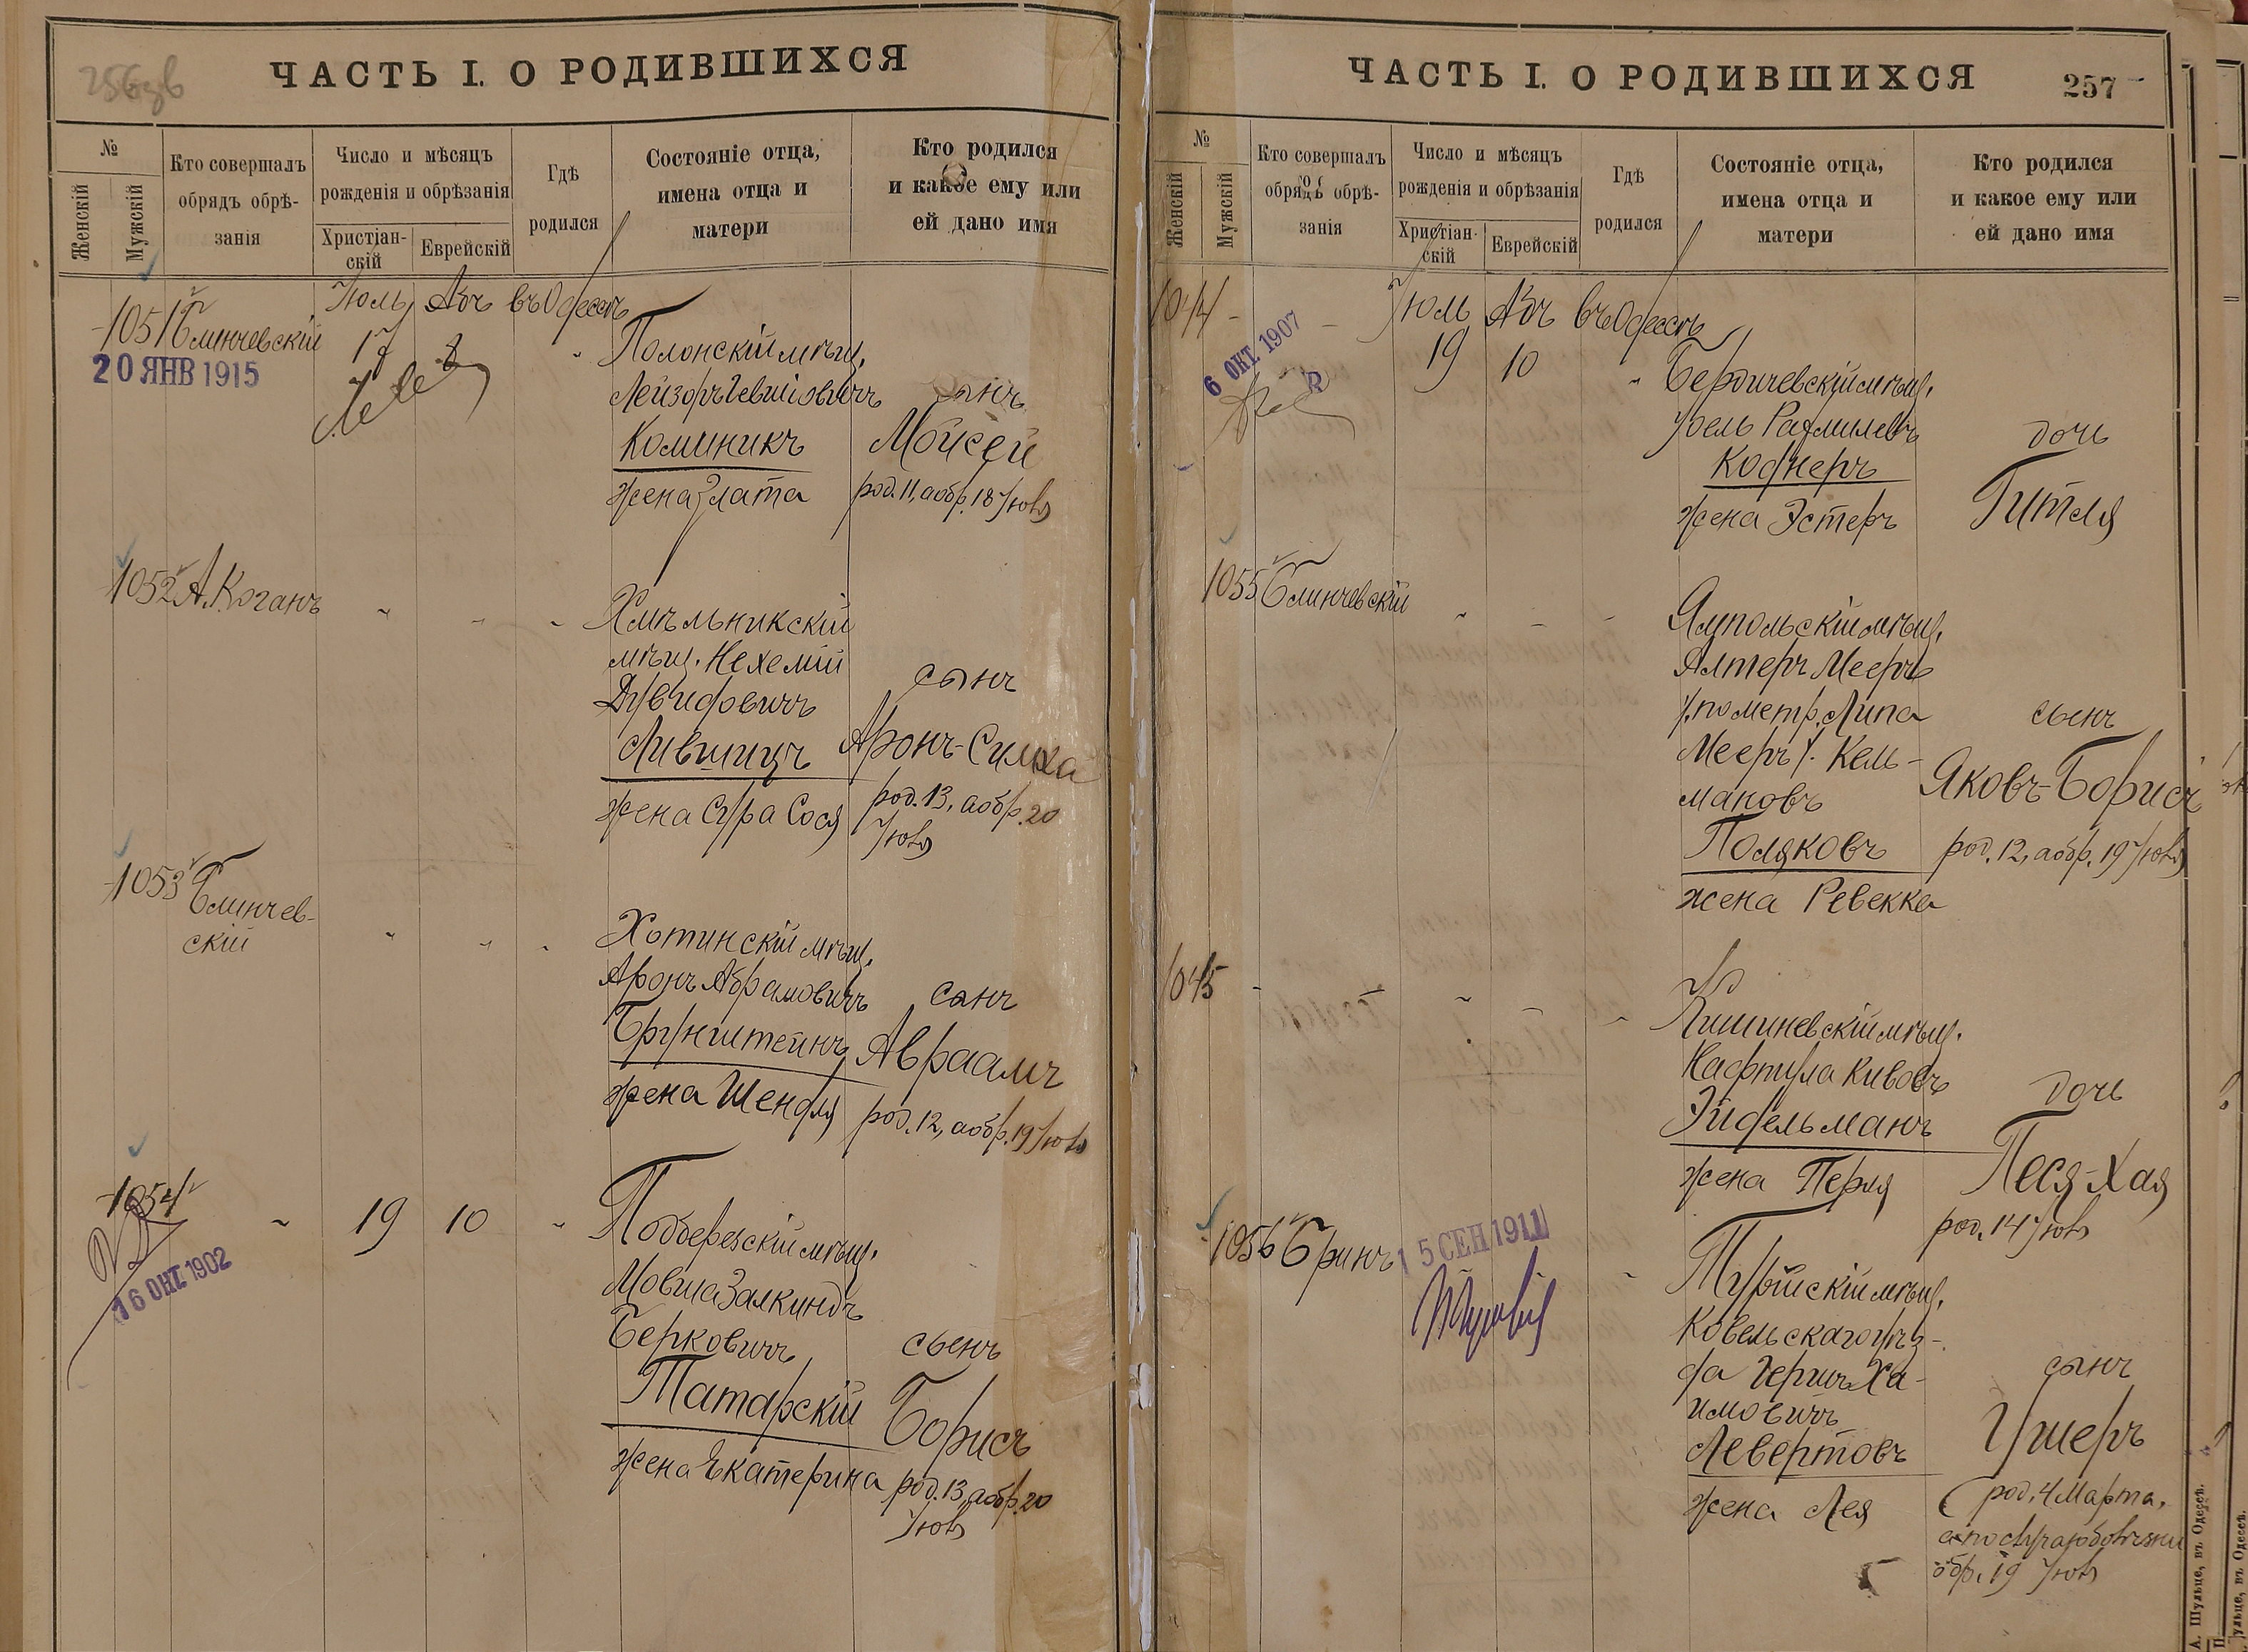 ЧАСТЬ I. О РОДИВШИХСЯ
№
Женскій
Мужскій
Кто совершалъ
обрядъ обрѣ-
занія
Число и мѣсяцъ
рожденія и обрѣзанія
Христіан-
скій
Еврейскій
Гдѣ
родился
Состояніе отца,
имена отца и
матери
Кто родился
и какое ему или
ей дано имя
1051
Блинчевскій
Іюль
17
Авъ
8
въ Одессѣ
20 ЯНВ 1915
Полонскій мѣщ.
Лейзоръ Іевшіовичъ
Коминикъ
жена Злата
сынъ
Мойсей
род. 11, а обр. 18 Іюля
1052
А. Коганъ
Хмѣльникскій
мѣщ. Нехемій
Дувидовичъ
Лившицъ
жена Сура Сося
сынъ
Аронъ-Симха
род. 13, а обр. 20
Іюля
1053
Блинчев-
скій
Хотинскій мѣщ.
Аронъ Абрамовичъ
Брунштейнъ
жена Шендля
сынъ
Авраамъ
род. 12, а обр. 19 Іюля
1054
19
10
16 ОКТ 1902
Подберезскій мѣщ.
Мовша Залкиндъ
Берковичъ
Татарскій
жена Екатерина
сынъ
Борисъ
род. 13, а обр. 20
Іюля
ЧАСТЬ I. О РОДИВШИХСЯ
257
№
Женскій
Мужскій
Кто совершалъ
обрядъ обрѣ-
занія
Число и мѣсяцъ
рожденія и обрѣзанія
Христіан-
скій
Еврейскій
Гдѣ
родился
Состояніе отца,
имена отца и
матери
Кто родился
и какое ему или
ей дано имя
1044
Іюль
19
Авъ
10
въ Одессѣ
6 ОКТ 1907
Бердичевскій мѣщ.
Жена Эстеръ
дочь
Гитля
1055
Блинчевскій
Ямпольскій мѣщ.
Алтеръ Мееръ
/: по метр. Липа
Мееръ :/ Кель-
мановъ
Поляковъ
жена Ревекка
сынъ
Яковъ-Борисъ
род. 12, а обр. 19 Іюля
1045
Кишиневскій мѣщ.
Нафтула Кивовъ
Эйдельманъ
жена Перля
дочь
Песя-Хая
род. 14 Іюля
1056
Бринъ
15 СЕН 1911
Турійскій мѣщ.
Ковельскаго уѣз-
да Гершъ Ха-
имовичъ
Левертовъ
жена Лея
сынъ
Ушеръ
род. 4 Марта,
а по случ. а
обр. 19 Іюля
А. Шульце, въ Одессѣ.